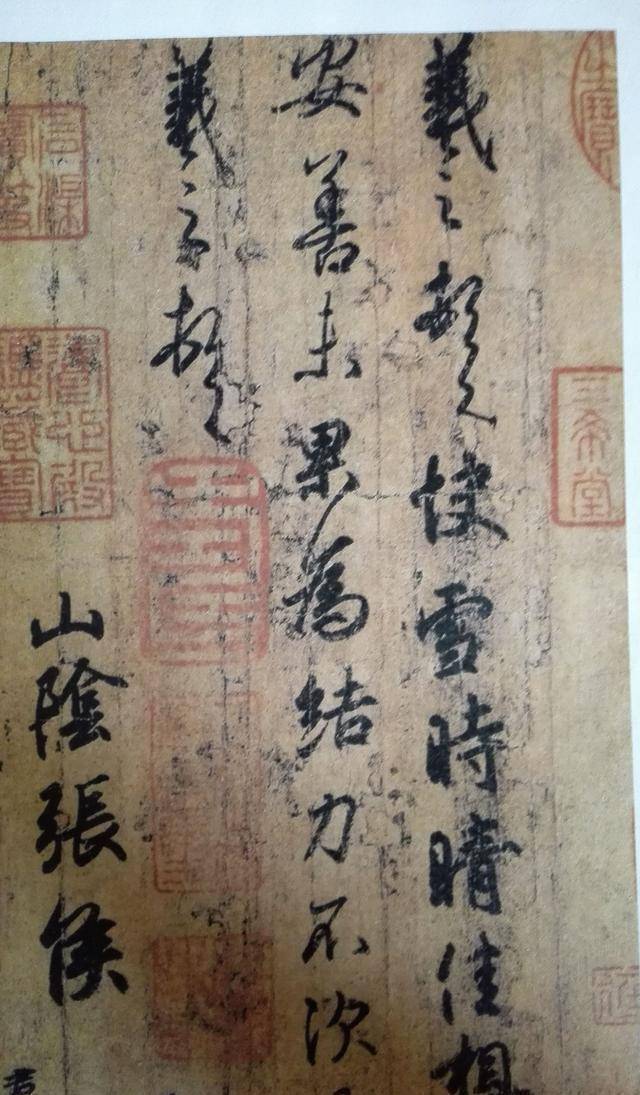 三希堂
羲之頓首快雪時晴佳想
安善未果為結力不次
羲之頓首
山陰張侯